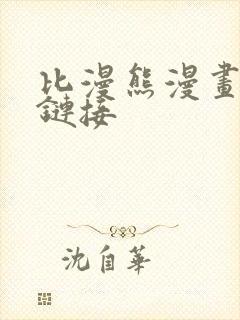 比漫熊漫畫
鏈接
沈自華